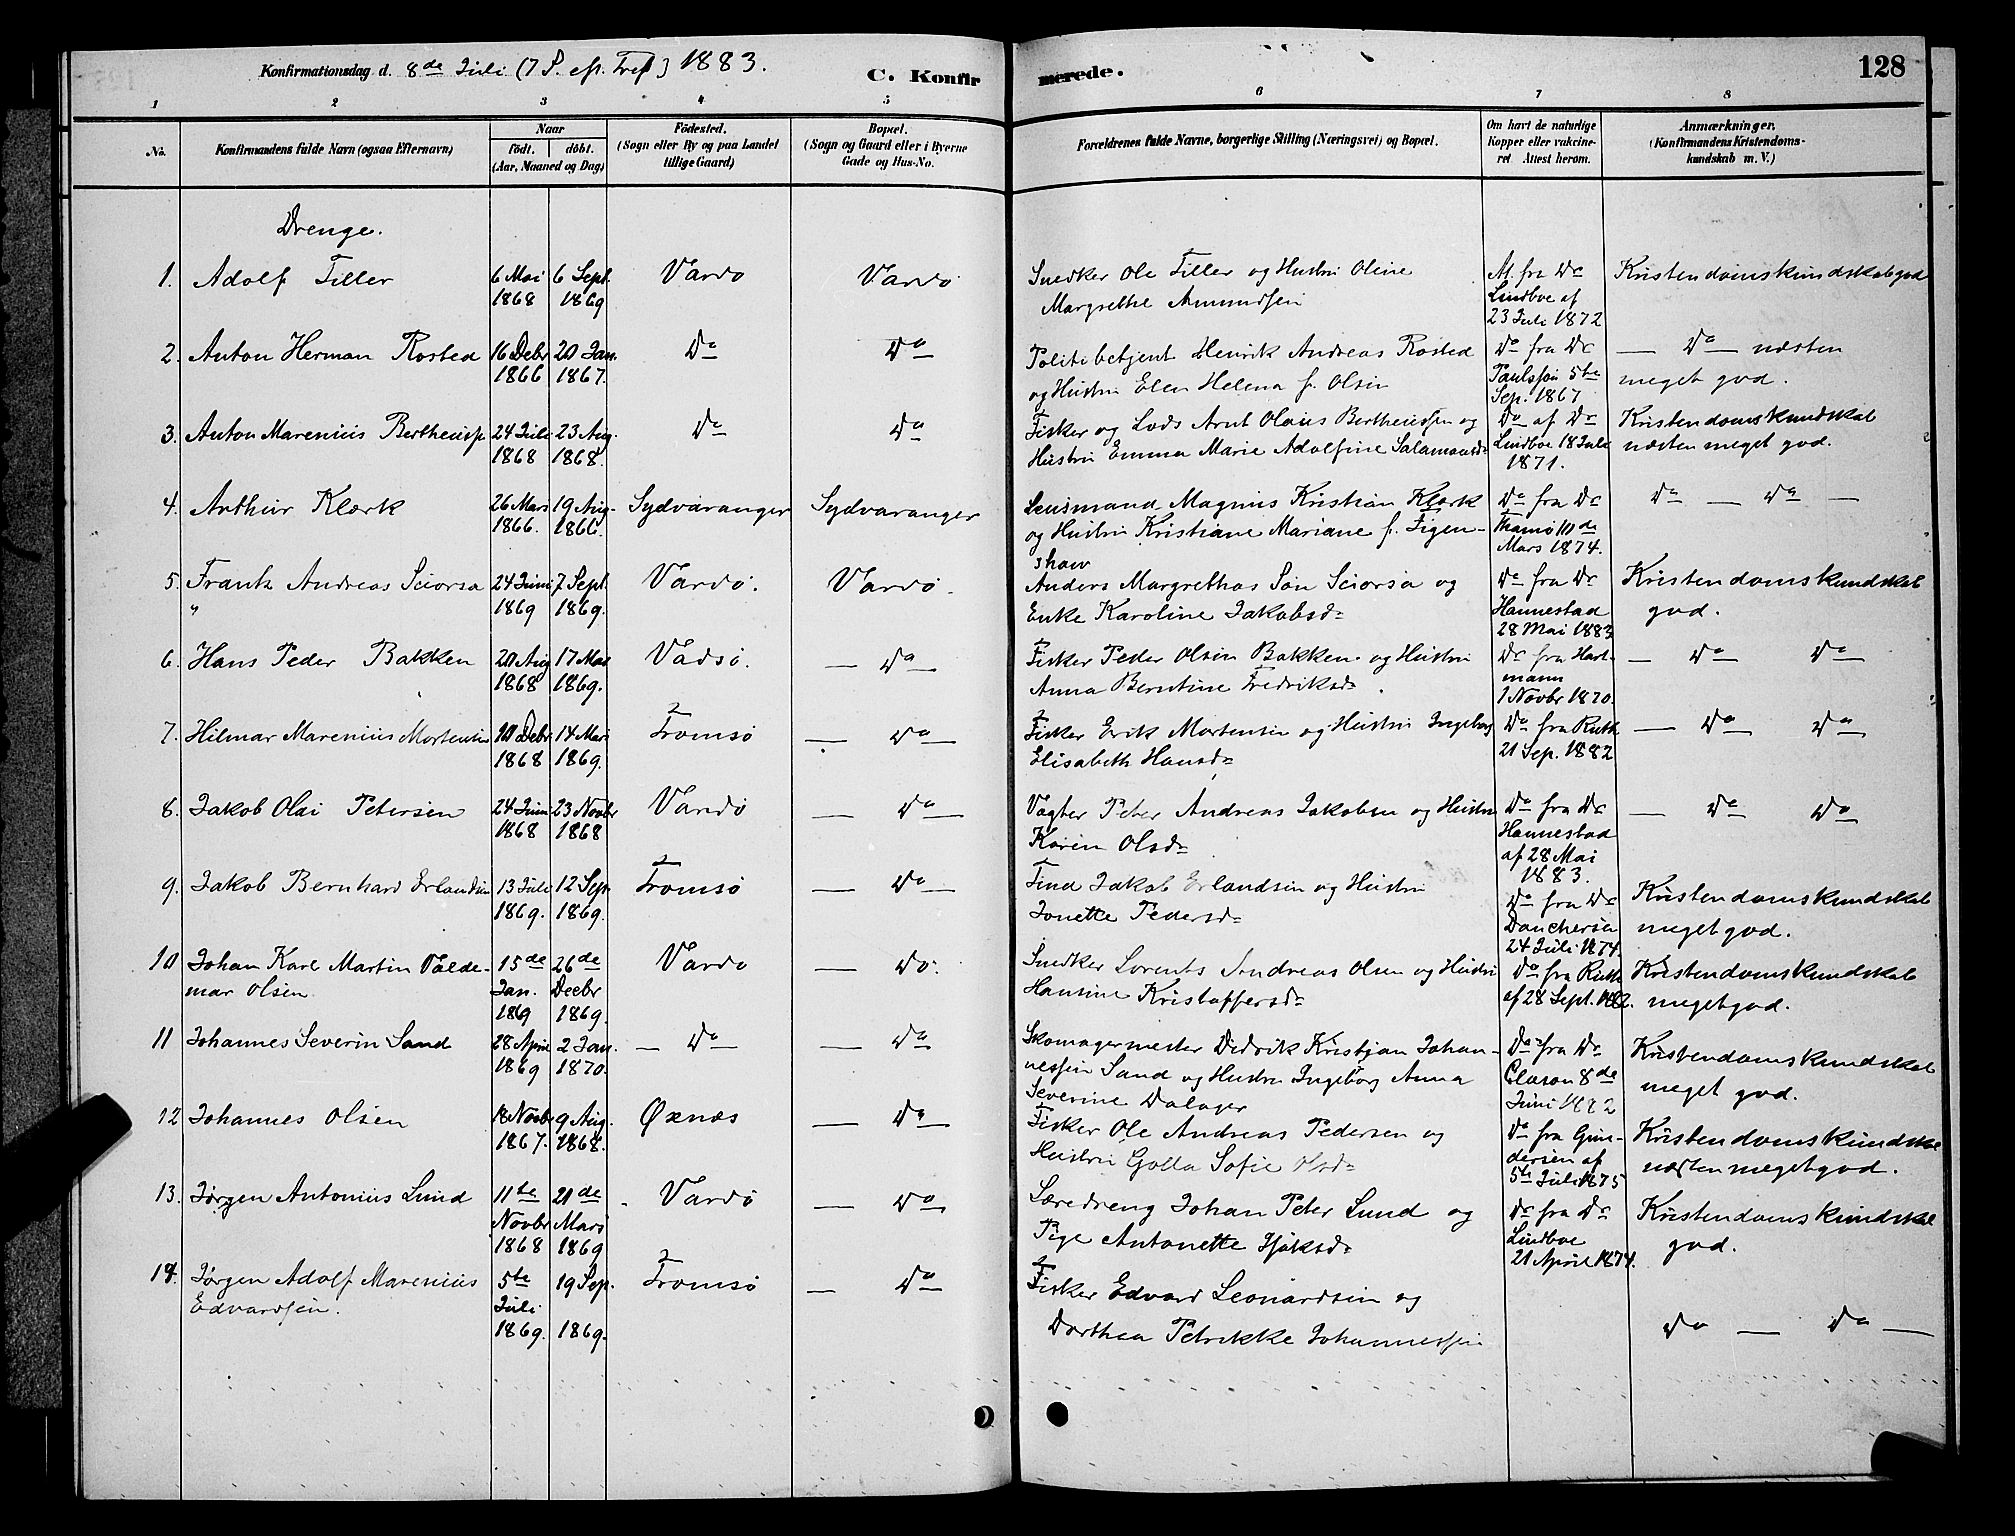 Konfirmationsdag d. 8de Juli (7 S. ep. Tref) 1883. C. Konfirmerede. 128
1 2 3 4 5 6 7 8
No. Konfirmandens fulde Navn (ogsaa Efternavn) Naar født. døbt. (Aar, Maaned og Dag) Fødested. (Sogn eller By og paa Landet tillige Gaard) Bopæl. (Sogn og Gaard eller i Byerne Gade og Hus-No. Forældrenes fulde Navne, borgerlige Stilling (Næringsvei) og Bopæl. Om havt de naturlige Kopper eller vakcineret. Attest herom. Anmærkninger. (Konfirmandens Kristendomskundskab m. V.)
Drenge.
1. Adolf Tiller 6 Mai 1868 6 Sept. 1869 Vardø Vardø Snedker Ole Tiller og Hustru Oline
Margrethe Amundsen At. fra Dr Lindboe af 23 Juli 1872 Kristendomskundskab god
2. Anton Herman Rosted 16 Debr 1866 20 Jan. 1867. Do Do Politibetjent Henrik Andreas Rosted
og Hustru Elen Helena f. Olsen Do fra Dr Paulssøn 5te Sep. 1867 — Do — næsten
meget god.
3. Anton Marenius Bertheussn 24 Juli 1868 23 Aug. 1868. Do Do Fisker og Lods Arnt Olaus Bertheussen og
Hustru Emma Marie Adolfine Salamonsdr Do af Dr Lindboe 18 Juli 1871. Kristendomskundskab
næsten meget god.
4. Arthur Klærk 26 Mars 1866. 19 Aug. 1866. Sydvaranger Sydvaranger Lensmand Magnus Kristian Klærk
og Hustru Kristiane Mariane f. Figen-
shaw Do fra Dr Thamø 10de Mars 1874. Do — Do —
5. Frantz Andreas Sciorsa 24 Juni 1869 7 Sept. 1869. Vardø. Vardø. Anders Margrethas Søn Sciorsa og
" Enke Karoline Jakobsdr Do fra Dr Hannestad 28 Mai 1883 Kristendomskundskab
god.
6. Hans Peder Bakken 20 Aug 1868 17 Mai 1869. Vadsø. — Do — Fisker Peder Olsen Bakken og Hustru
Anna Berntine Fredriksdr. Dr fra Hartmann 1 Novbr 1870. — Do — Do —
7. Hilmar Marenius Mortensen 20 Debr 1868 14 Mars 1869. Tromsø — Do — Fisker Erik Mortensen og Hustru Ingeborg
Elisabeth Hansdr Do fra Ruth 21 Sep. 1882 — Do — Do —
8. Jakob Olai Petersen 24 Juni 1868 23 Novbr 1868 Vardø — Do — Vagter Peter Andreas Jakobsen og Hustru
Karen Olsdr Do fra Dr Hannestad af 28 Mai 1883. — Do — Do —
9. Jakob Bernhard Erlandsen 13 Juli 1869. 12 Sep. 1869. Tromsø — Do — Find Jakob Erlandsen og Hustru
Jonette Pedersdr Do fra Dr Danchersen 24 Juli 1874. Kristendomskundskab
meget god.
10 Johan Karl Martin Valde- 15de Jan. 1869 26de Decbr 1869. Vardø — Do. Snedker Lorents Andreas Olsen og Hustru
mar Olsen. Hansine Kristoffersdr Do fra Ruth af 28 Sept. 1882. Kristendomskundskab
meget god.
11 Johannes Severin Sand 28 April 1869 2 Jan. 1870. — Do — — Do — Skomagermester Didrik Kristjan Johan-
nessen Sand og Hustru Ingeborg Anna
Severine Dalager Do fra Dr Clason 8de Juni 1882 Kristendomskundskab
meget god.
12 Johannes Olsen 18 Novbr 1867. 9 Aug. 1868. Øxnæs — Do — Fisker Ole Andreas Pedersen og
Hustru Golla Sofie Olsdr Do fra Gundersen af 5te Juli 1875 Kristendomskundskab
næsten meget god.
13. Jørgen Antonius Lund 11te Novbr 1868 21de Mars 1869 Vardø — Do — Læredreng Johan Peter Lund og
Pige Antonette Isaksdr Dr fra Dr Lindboe 21 April 1874. Kristendomskundskab
god.
14. Jørgen Adolf Marenius 5te Juli 1869. 19 Sep. 1869. Tromsø — Do — Fisker Edvard Leonardsen og
Edvardsen. Dorthea Petrikke Johannessen Do — Do —